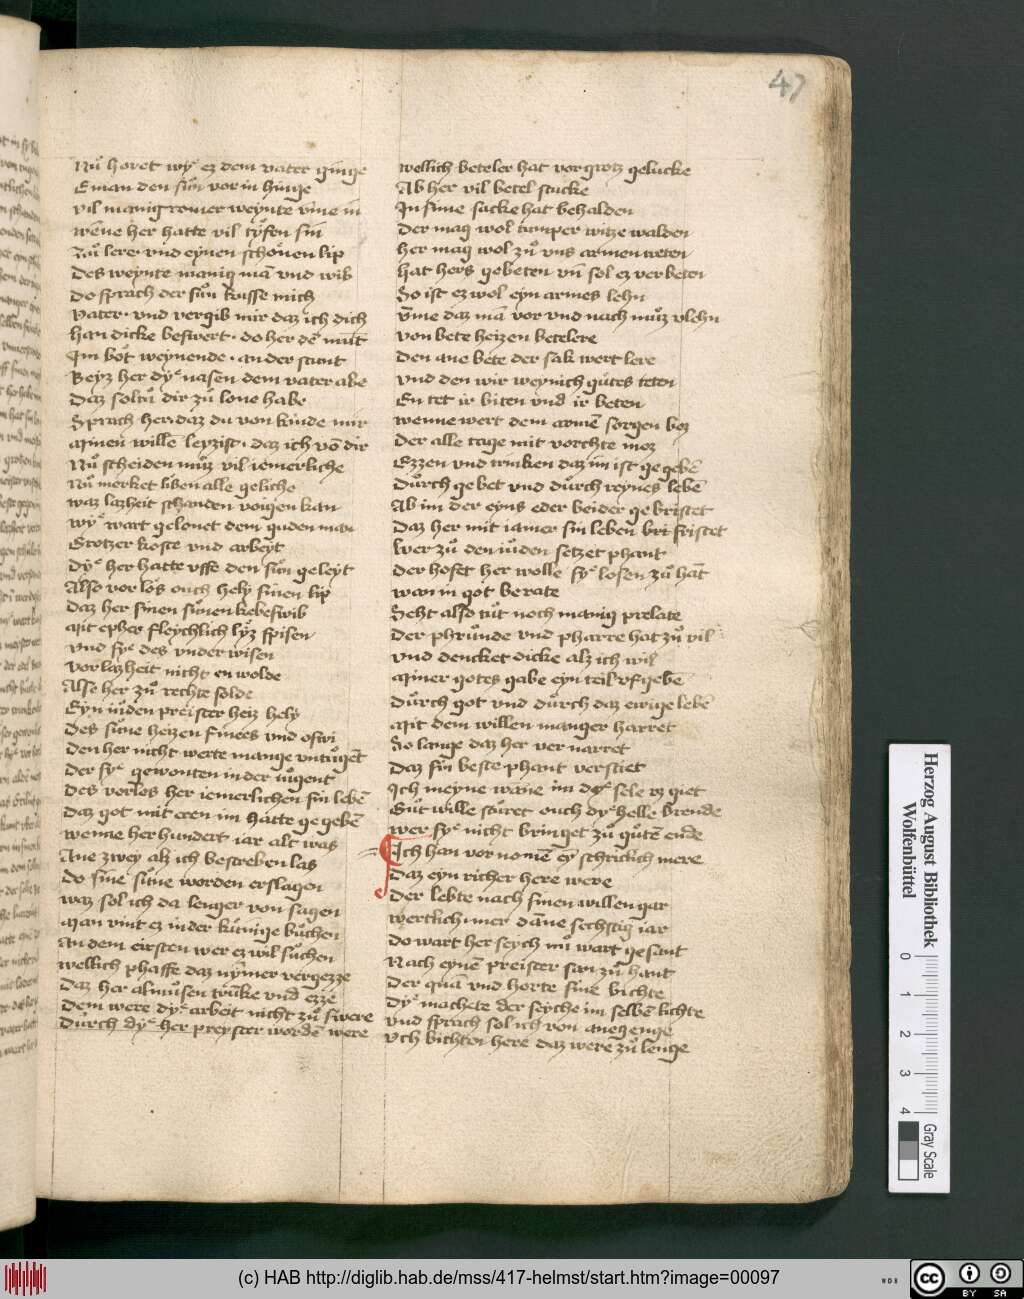 47
Nu horet wy ez dem vater ginge
E man den sun vor in hinge
vil manig romer weynte vme in
wene her hatte vil tyfen sin
Zu lere vnd eynen schonen lip
Des weynte manig ma vnd wib
Do sprach der sun kusse mich
vater vnd vergib mir daz ich dich
han dicke beswert do her de munt
Im bot weynende an der stunt
Beyz her dy nasen dem vater abe
Daz soltu dir zu lone habe
Sprach her daz du von kinde mir
Minen wille lyezist daz ich vo dir
Nu scheiden muz vil iemerliche
Nu merket liben alle geliche
waz lazheit schanden vugen kan
wy wart gelonet dem guden man
Grotzer koste vnd arbeyt
Dy her hatte vffe den sun geleyt
Also vor los ouch hely sinen lip
Daz her sinen sunen kebeswib
Mit epher fleyschlich lyz spisen
vnd sy des vnder wisen
vor lazheit nicht en wolde
Also her zu rechte solde
Eyn iuden preister heiz hely
Des sune heizen finees vnd ofni
Den her nicht werte mange vntuget
Der sy gewonten in der iugent
Des verlos her iemerlichen sin lebe
Daz got mit eren im hatte gegebe
wenne her hundert iar alt was
Ane zwey alz ich bescreben las
Do sine sune worden erslagen
waz sol ich da lenger von sagen
Man vint ez in der kunige buchen
An dem eirsten wer ez wil suchen
wellich phaffe daz nymer vergezze
Daz her almusen trinke vnd ezze
Dem were dy arbeit nicht zu swere
Durch dy her preyster worde were
wellich beteler hat vor grotz gelucke
Ab her vil betel stucke
In sime sacke hat behalden
Der mag wol tumper witze walden
her mag wol zu vns armen treten
hat hers gebeten vn sol ez verbeten
So ist ez wol eyn armes lehn
vme daz ma vor vnd nach muz vlehn
von bete heizen betelere
Den ane bete der sak wert lere
vnd den wir weynich gutes teten
En tet ir biten vnd ir beten
wenne wert dem arme sorgen boz
Der alle tage mit vorchte moz
Ezzen vnd trinken daz im ist gegebe
Durch gebet vnd durch reynes lebe
Ab im der eyns eder beider gebristet
Daz her mit iamer sin leben bri fristet
wer zu den iuden setzet phant
Der hofet her wolle sy losen zu hat
wan in got berate
Seht also tut noch manig prelate
Der phrunde vnd pharre hat zu vil
vnd dencket dicke alz ich wil
Miner gotes gabe eyn teil vf gebe
Durch got vnd durch daz ewige lebe
Mit dem willen manger harret
So lange daz her ver narret
Daz sin beste phant verstiet
Ich meyne wene im de sele vz giet
Gut wille sturet ouch dy helle brende
wer sy nicht bringet zu gute ende
Ich han vornome ey schriclich mere
Daz eyn richer here were
Der lebte nach sinen willen gar
wertlich mer danne sechszig iar
Do wart her seych nu wart gesant
Nach eyne preister san zu hant
Der qua vnd horte sine bichte
Dy machete der seyche im selbe lichte
vnd sprach sol ich von anegenge
vch bichten here daz were zu lenge
Herzog August Bibliothek
Wolfenbüttel
0 1 2 3 4
Gray Scale
(c) HAB http://diglib.hab.de/mss/417-helmst/start.htm?image=00097
WDB
cc BY SA